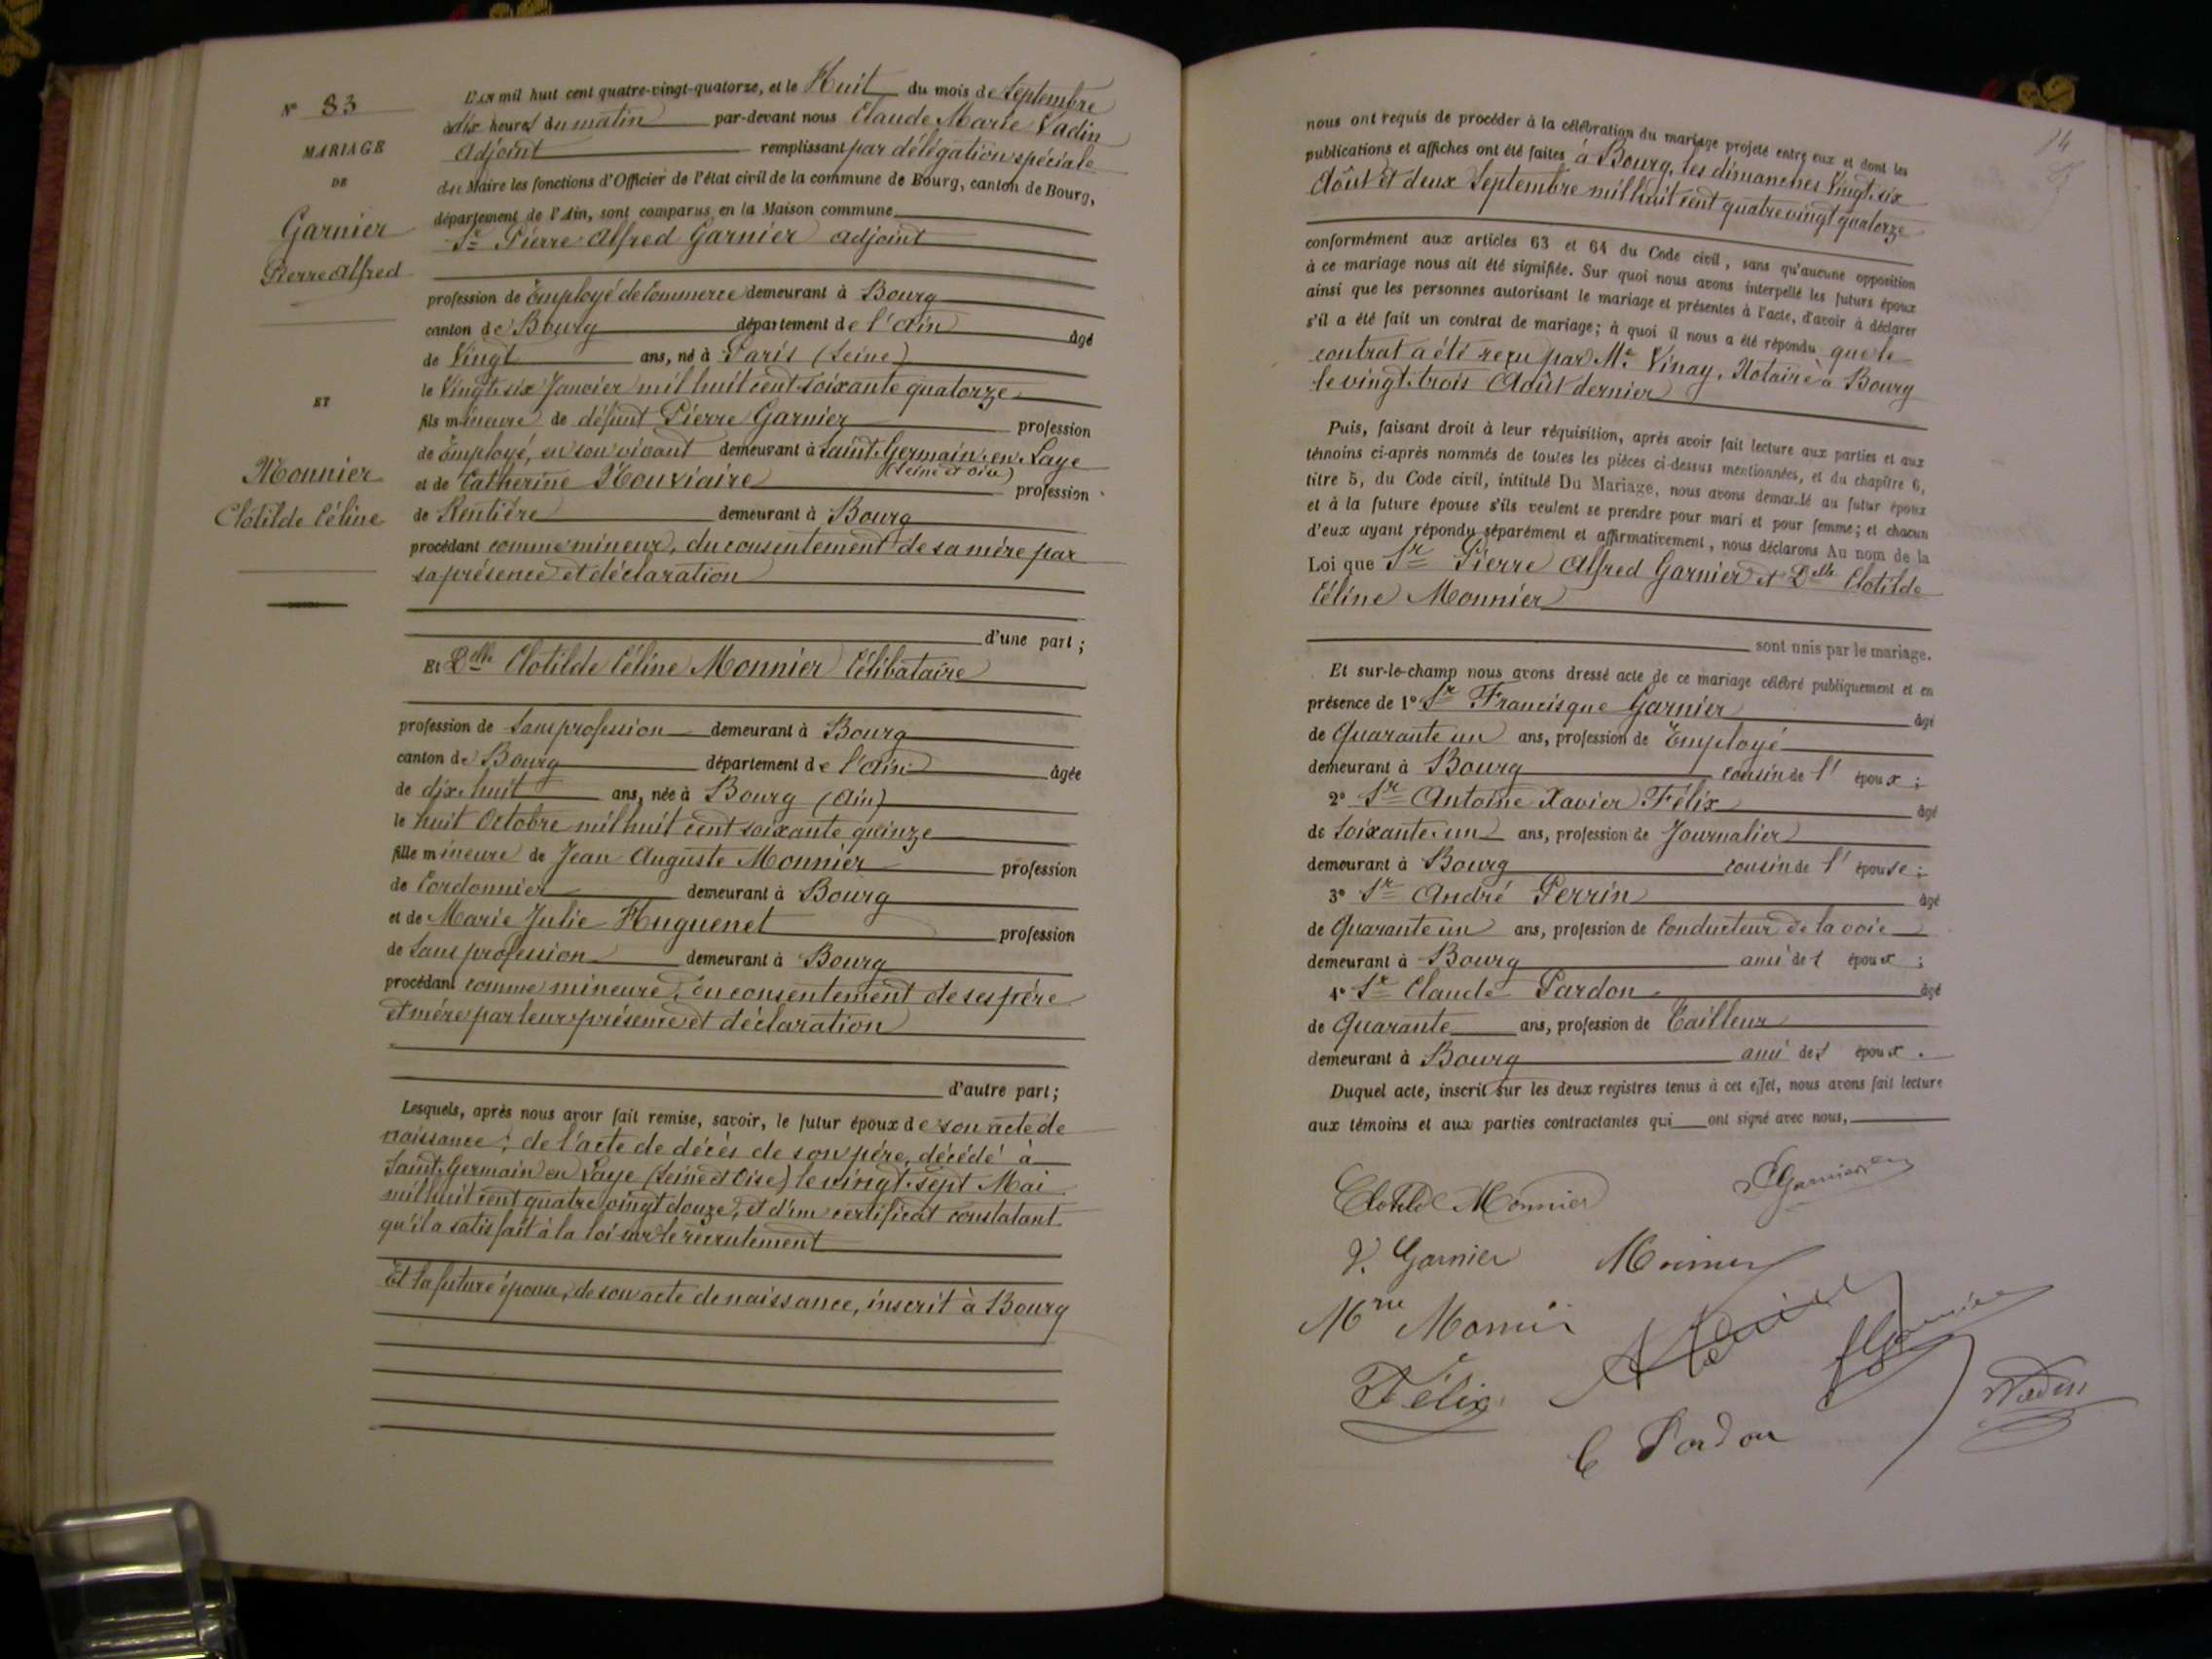 N° 83
MARIAGE
DE
Garnier
Pierre Alfred
ET
Monnier
Clotilde Céline
L'AN mil huit cent quatre-vingt-quatorze, et le Huit du mois de Septembre
à dix heures du matin par-devant nous Claude Marie Vadin
Adjoint remplissant par délégation spéciale
du Maire les fonctions d'Officier de l'état civil de la commune de Bourg, canton de Bourg,
département de l'Ain, sont comparus en la Maison commune
Sr Pierre Alfred Garnier adjoint
profession de Employé de Commerce demeurant à Bourg
canton de Bourg département de l'Ain âgé
de Vingt ans, né à Paris (Seine)
le Vingt-six Janvier mil huit cent soixante quatorze
fils mineure de défunt Pierre Garnier profession
de Employé, en son vivant demeurant à Saint-Germain-en-Laye
(Seine et Oise)
et de Catherine Mouxiaire profession
de Rentière demeurant à Bourg
procédant comme mineur, du consentement de sa mère par
sa présence et déclaration
d'une part ;
Et Delle Clotilde Céline Monnier Célibataire
profession de Sans profession demeurant à Bourg
canton de Bourg département de l'Ain âgée
de dix-huit ans, née à Bourg (Ain)
le huit Octobre mil huit cent soixante quinze
fille mineure de Jean Auguste Monnier profession
de Cordonnier demeurant à Bourg
et de Marie Julie Huguenet profession
de Sans profession demeurant à Bourg
procédant comme mineure, du consentement de ses père
et mère par leur présence et déclaration
d'autre part ;
Lesquels, après nous avoir fait remise, savoir, le futur époux de son acte de
naissance ; de l'acte de décès de son père, décédé à
Saint-Germain en Laye (Seine et Oise) le vingt-sept Mai
mil huit cent quatre vingt douze, et d'un certificat constatant
qu'il a satisfait à la loi sur le recrutement
Et la future épouse, de son acte de naissance, inscrit à Bourg
14
nous ont requis de procéder à la célébration du mariage projeté entre eux et dont les
publications et affiches ont été faites à Bourg, les dimanches Vingt-six
Août et deux Septembre mil huit cent quatre vingt quatorze
conformément aux articles 63 et 64 du Code civil, sans qu'aucune opposition
à ce mariage nous ait été signifiée. Sur quoi nous avons interpellé les futurs époux
ainsi que les personnes autorisant le mariage et présentes à l'acte, d'avoir à déclarer
s'il a été fait un contrat de mariage ; à quoi il nous a été répondu que le
contrat a été reçu par Me Vinay, Notaire à Bourg
le vingt-trois Août dernier
Puis, faisant droit à leur réquisition, après avoir fait lecture aux parties et aux
témoins ci-après nommés de toutes les pièces ci-dessus mentionnées, et du chapitre 6,
titre 5, du Code civil, intitulé Du Mariage, nous avons demandé au futur époux
et à la future épouse s'ils veulent se prendre pour mari et pour femme ; et chacun
d'eux ayant répondu séparément et affirmativement, nous déclarons Au nom de la
Loi que Sr Pierre Alfred Garnier et Delle Clotilde
Céline Monnier
sont unis par le mariage.
Et sur-le-champ nous avons dressé acte de ce mariage célébré publiquement et en
présence de 1° Sr Francisque Garnier âgé
de Quarante un ans, profession de Employé
demeurant à Bourg cousin de l' époux ;
2° Sr Antoine Xavier Félix âgé
de Soixante-un ans, profession de Journalier
demeurant à Bourg cousin de l' épouse ;
3° Sr André Perrin âgé
de Quarante un ans, profession de Conducteur de la voie
demeurant à Bourg ami de l' époux ;
4° Sr Claude Pardon âgé
de Quarante ans, profession de Tailleur
demeurant à Bourg ami de l' époux.
Duquel acte, inscrit sur les deux registres tenus à cet effet, nous avons fait lecture
aux témoins et aux parties contractantes qui ont signé avec nous,
Clotilde Monnier
V. Garnier
Félix
C Pardon
Vadin